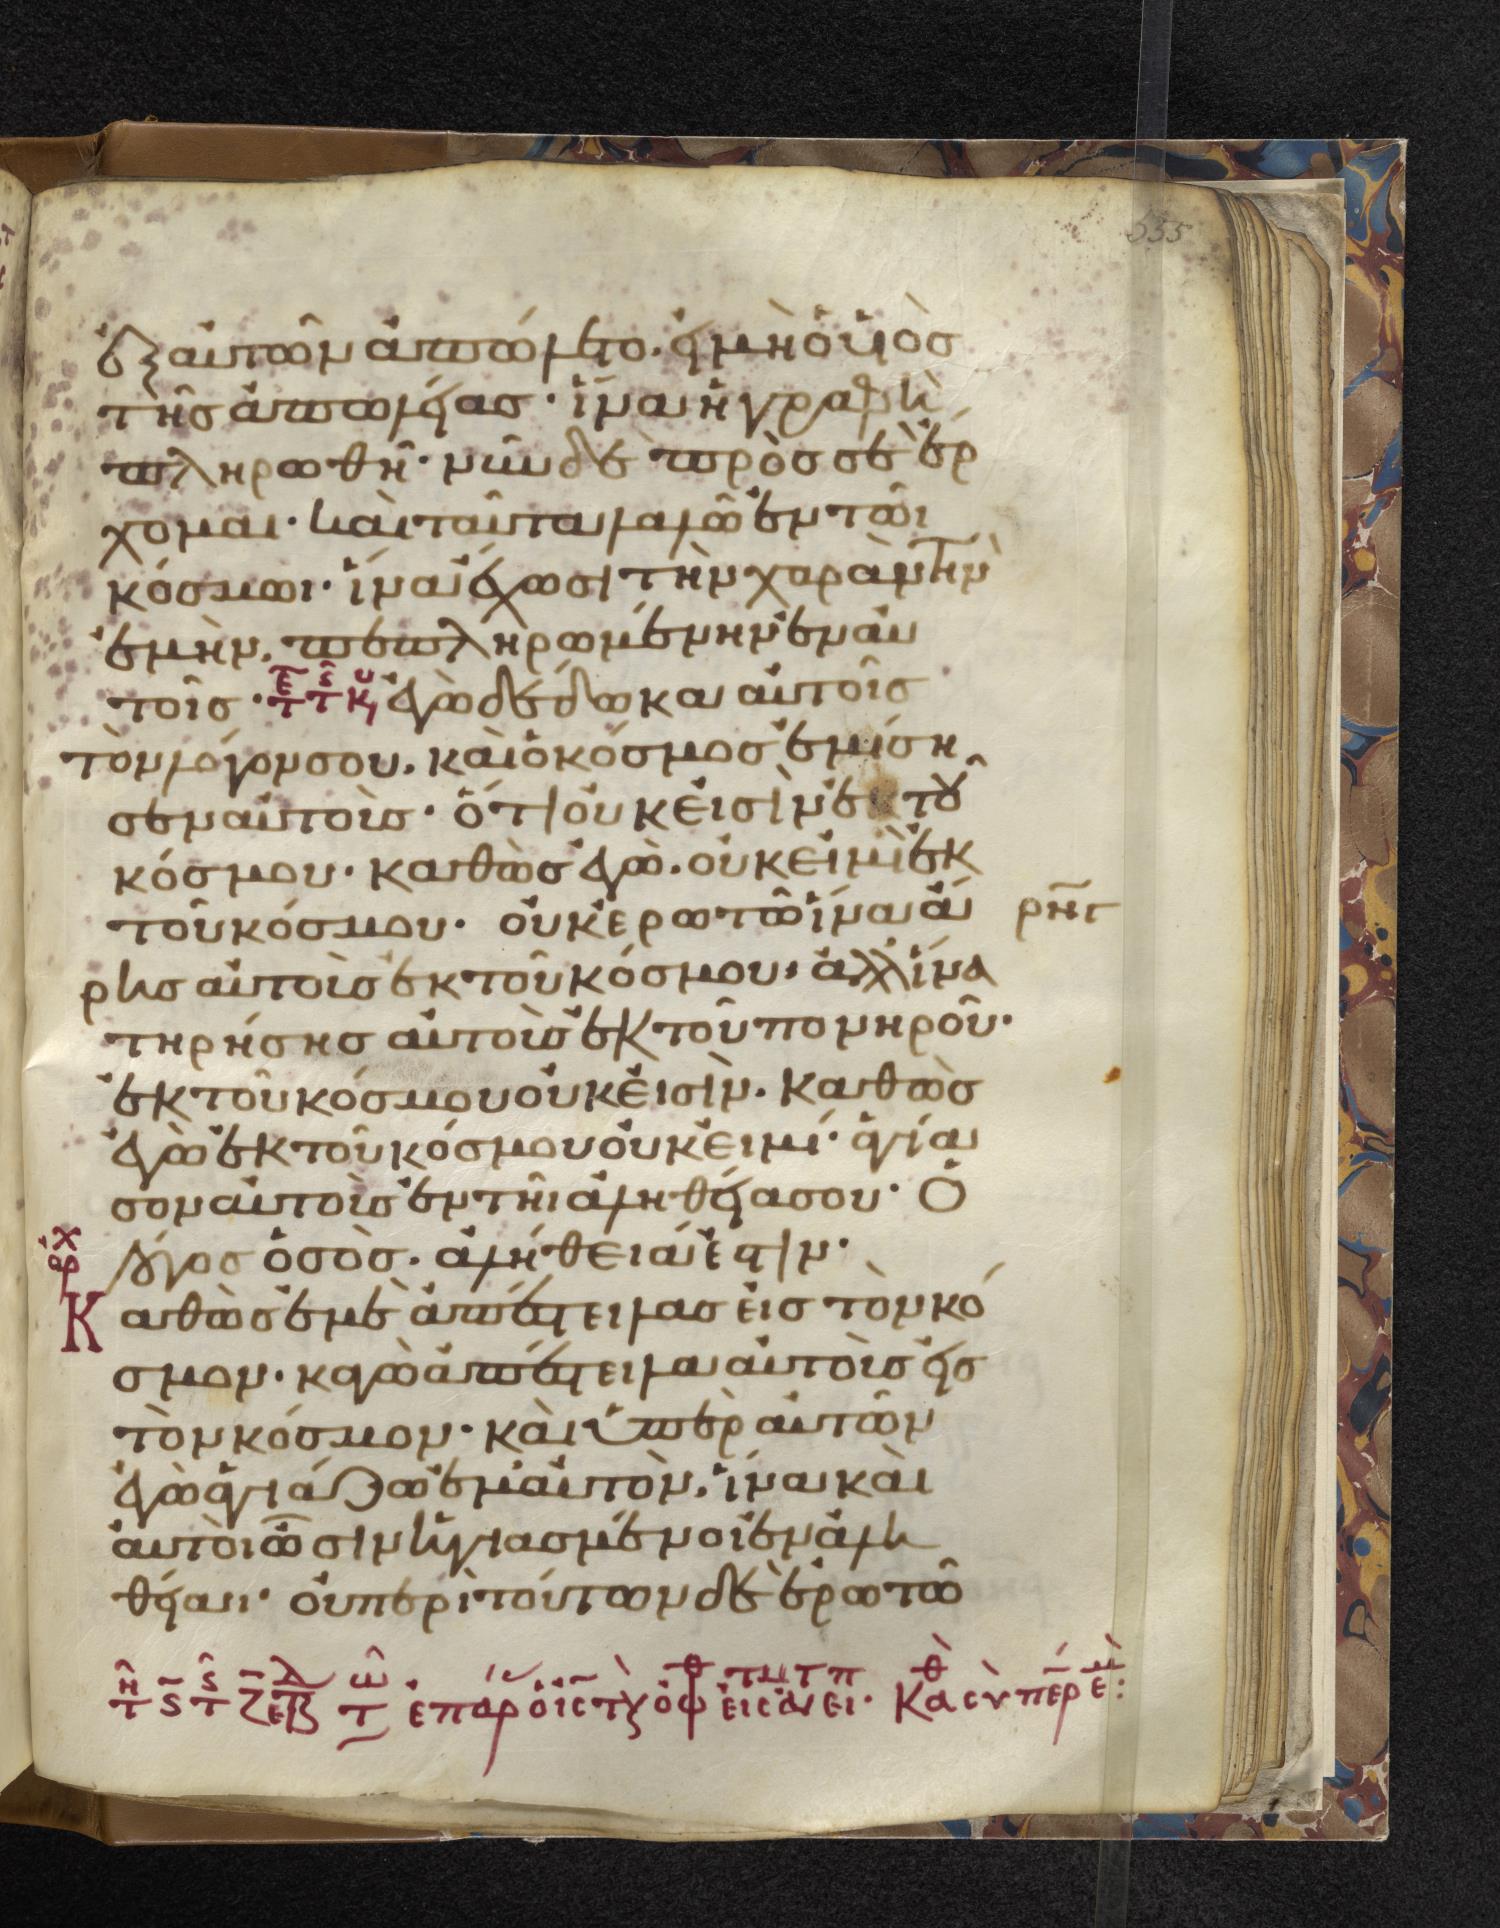 355
ἐξ αὐτῶν ἀπώλετο· εἰ μὴ ὁ υἱὸς
τῆς ἀπωλείας· ἵνα ἡ γραφὴ
πληρωθῆ· νῦν δὲ πρὸς σὲ ἔρ
χομαι· καὶ ταῦτα λαλῶ ἐν τῶι
κόσμωι· ἵνα ἔχωσι τὴν χαρὰν τὴν
ἐμὴν. πεπληρωμένην ἐν αὐ
τοῖς· ἐγὼ δέδωκα αὐτοῖς
τὸν λόγον σου. καὶ ὁ κόσμος ἐμίση
σεν αὐτοὺς· ὅτι οὐκ εἰσὶν ἐκ τοῦ
κόσμου· καθὼς ἐγὼ. οὐκ εἰμὶ ἐκ
τοῦ κόσμου· οὐκ ἐρωτῶ ἵνα ἄ
ρης αὐτοὺς ἐκ τοῦ κόσμου· ἀλλ ἵνα
τηρήσης αὐτοὺς ἐκ τοῦ πονηροῦ·
ἐκ τοῦ κόσμου οὐκ εἰσὶν. καθὼς
ἐγὼ ἐκ τοῦ κόσμου οὐκ εἰμί· ἁγία
σον αὐτοὺς ἐν τῆι ἀληθεία σου· Ὁ
λόγος ὁ σὸς. ἀλήθειά ἐστιν·
Καθὼς ἐμὲ ἀπέστειλας εἰς τὸν κό
σμον· καγὼ ἀπέστειλα αὐτοὺς εἰς
τὸν κόσμον· καὶ ὑπὲρ αὐτῶν
ἐγὼ ἁγιάζω ἐμαυτὸν. ἵνα καὶ
αὐτοὶ ὦσιν ἡγιασμένοι ἐν ἀλη
θείαι· οὐ περὶ τούτων δὲ ἐρωτῶ